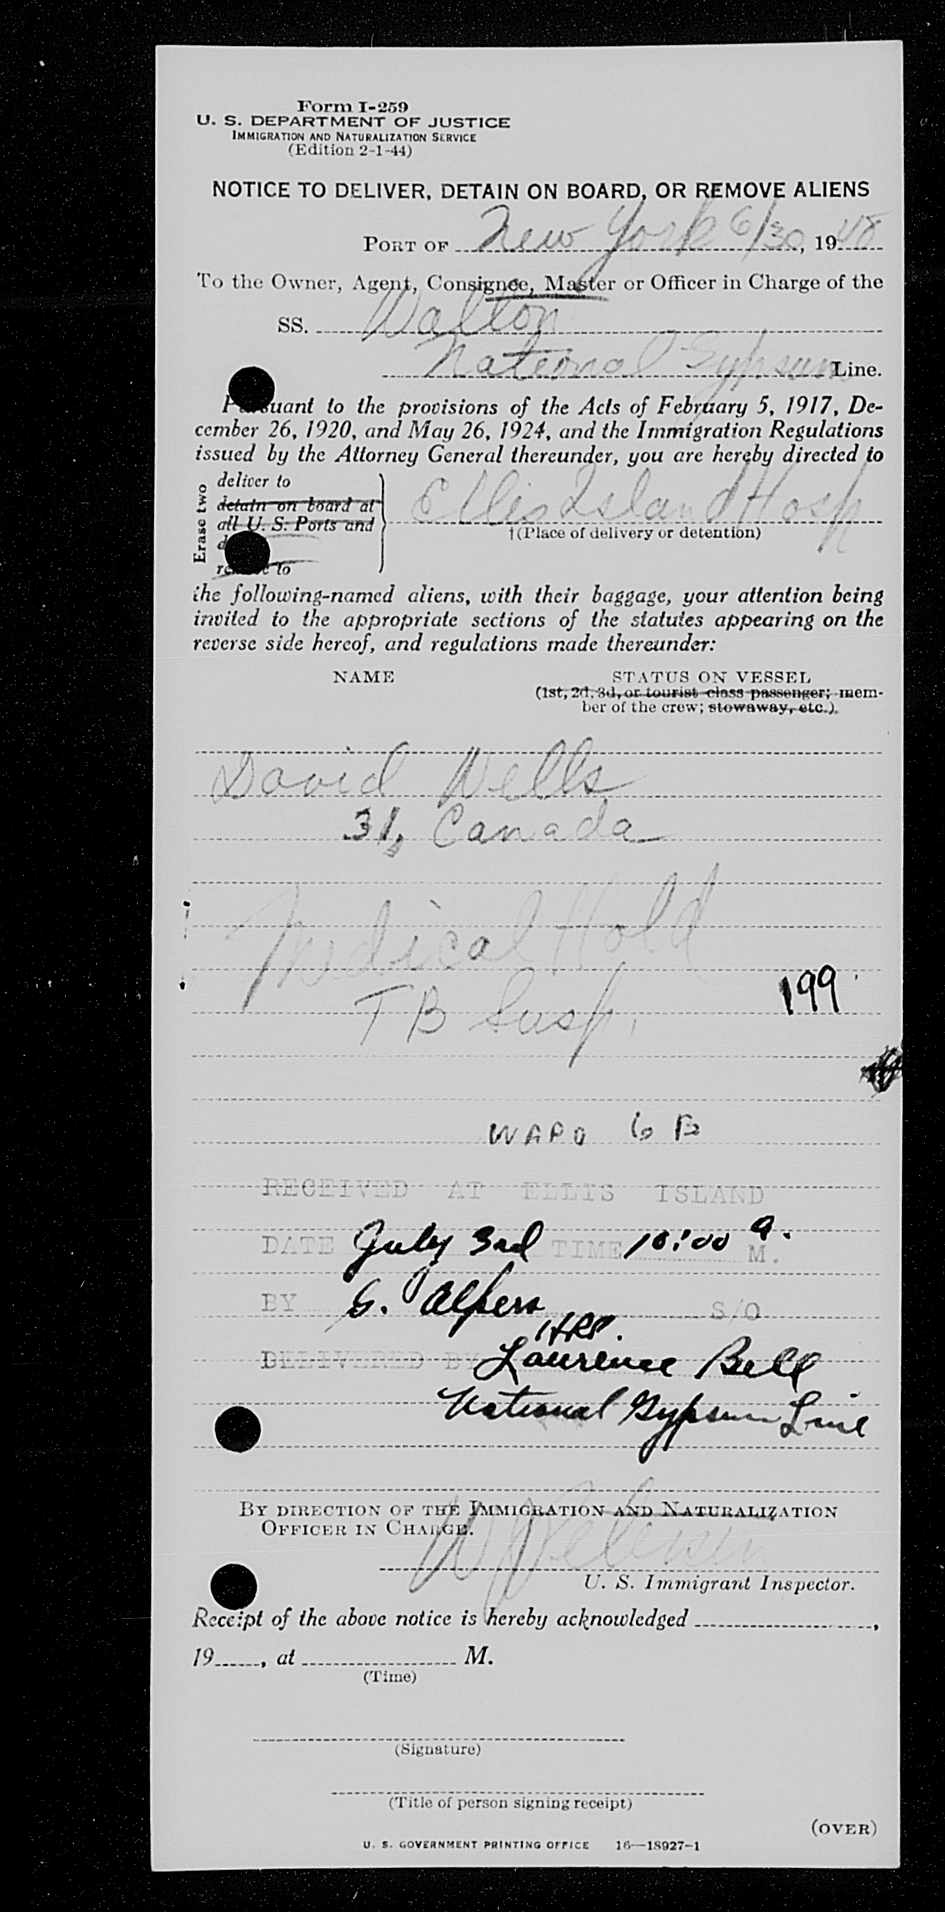 Form I-259
U. S. DEPARTMENT OF JUSTICE
IMMIGRATION AND NATURALIZATION SERVICE
(Edition 2-1-44)
NOTICE TO DELIVER, DETAIN ON BOARD, OR REMOVE ALIENS
PORT OF New York 6/30, 1948
To the Owner, Agent, Consignee, Master or Officer in Charge of the
SS. Walton
National Gypsum Line.
Pursuant to the provisions of the Acts of February 5, 1917, De-
cember 26, 1920, and May 26, 1924, and the Immigration Regulations
issued by the Attorney General thereunder, you are hereby directed to
Erase two
deliver to
detain on board at
all U. S. Ports and
to
Ellis Island Hosp
†(Place of delivery or detention)
the following-named aliens, with their baggage, your attention being
invited to the appropriate sections of the statutes appearing on the
reverse side hereof, and regulations made thereunder:
NAME STATUS ON VESSEL
(1st, 2d, 3d, or tourist class passenger; mem-
ber of the crew; stowaway, etc.)
David Wells
31, Canada
Medical Hold
199
TB Susp.
WARD 6 B
RECEIVED AT ELLIS ISLAND
DATE July 3rd TIME 10:00 a. M.
BY G. Alpers S/O
DELIVERED BY Laurence Bell
National Gypsum Line
BY DIRECTION OF THE IMMIGRATION AND NATURALIZATION
OFFICER IN CHARGE.
U. S. Immigrant Inspector.
Receipt of the above notice is hereby acknowledged ,
19 , at M.
(Time)
(Signature)
(Title of person signing receipt)
(OVER)
U. S. GOVERNMENT PRINTING OFFICE 16—18927-1